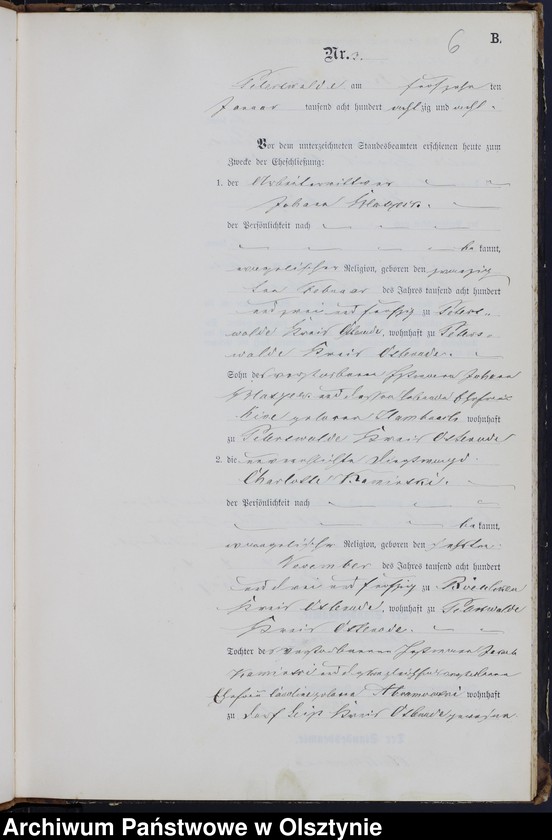 6
B.
Nr. 3.
Peterswalde am fünfzehn ten
Januar tausend acht hundert achtzig und acht
Vor dem unterzeichneten Standesbeamten erschienen heute zum
Zwecke der Eheschließung:
1. der Arbeiter
Johann
der Persönlichkeit nach
bekannt,
evangelischer Religion, geboren den zwanzig
ten Februar des Jahres tausend acht hundert
und zwei und fünfzig zu Peters-
walde Kreis Osterode, wohnhaft zu Peters-
walde Kreis Osterode.
Sohn des verstorbenen Johann
und dessen Ehefrau
geborene wohnhaft
zu Peterswalde Kreis Osterode
2. die unverehelichte Dienstmagd
Charlotte Kaminski.
der Persönlichkeit nach
bekannt,
evangelischer Religion, geboren den sechsten
November des Jahres tausend acht hundert
und drei und fünfzig zu
Kreis Osterode, wohnhaft zu Peterswalde
Kreis Osterode.
Tochter des verstorbenen
Kaminski und verstorbenen
Ehefrau geborene Abramowski wohnhaft
zu Dorf Kreis Osterode
Archiwum Państwowe w Olsztynie